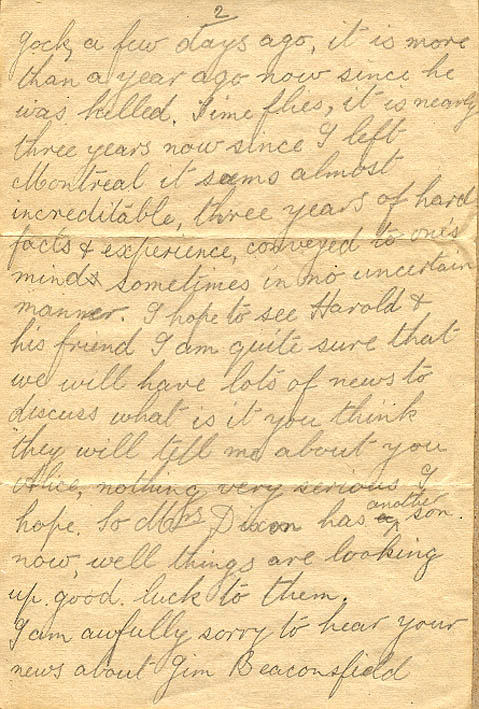 2
Jock, a few days ago, it is more
than a year ago now since he
was killed. Time flies, it is nearly
three years now since I left
Montreal it seems almost
increditable, three years of hard
facts & experience, conveyed to one's
minds sometimes in no uncertain
manner. I hope to see Harold &
his friend I am quite sure that
we will have lots of news to
discuss what is it you think
they will tell me about you
Alice, nothing very serious I
hope. So Mrs Dixon has another son.
now, well things are looking
up. good. luck to them.
I am awfully sorry to hear your
news about Jim Beaconsfield